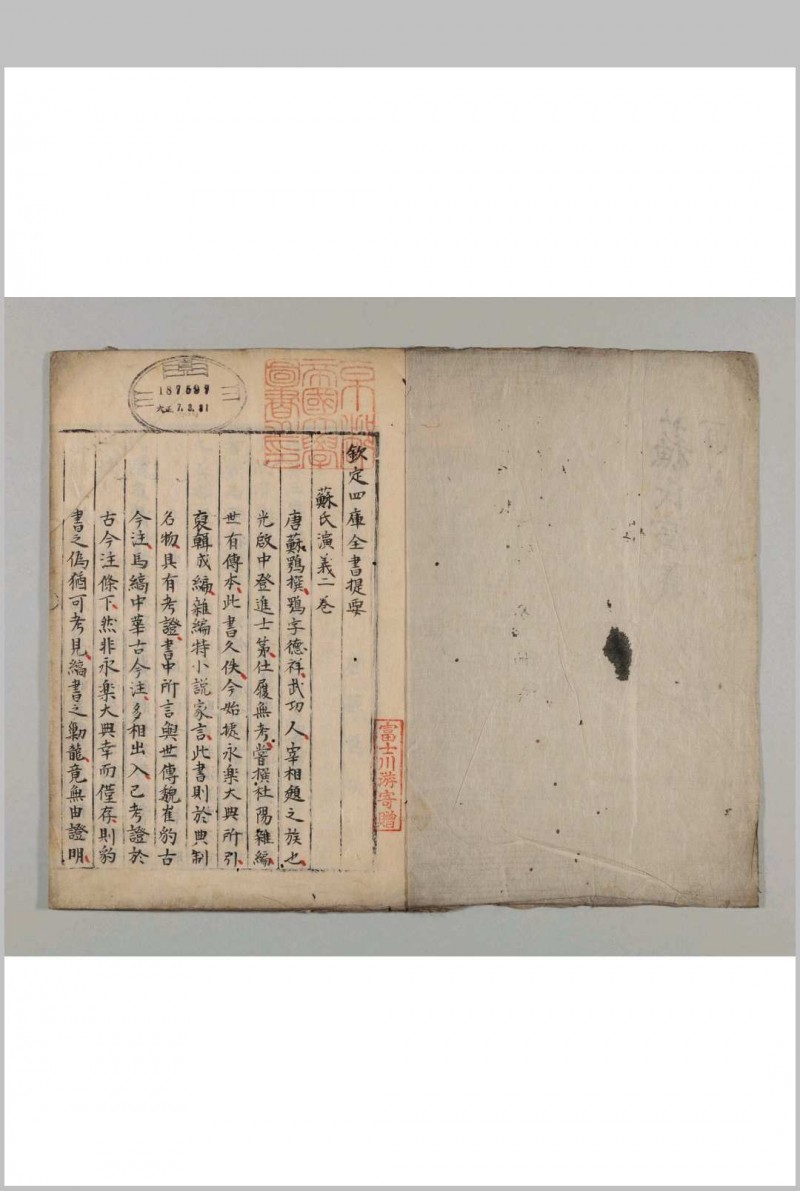 欽定四庫全書提要
蘇氏演義二卷
唐蘇鶚撰鶚字德祥武功人宰相頲之族也
光啟中登進士第仕履無考嘗撰杜陽雜編
世有傳本此書久佚今始據永樂大典所引
裒輯成編雜編特小說家言此書則於典制
名物具有考證書中所言與世傳魏崔豹古
今注馬縞中華古今注多相出入已考證於
古今注條下然非永樂大典幸而僅存則豹
書之僞猶可考見縞書之勦襲竟無由證明
187597
大正7.3.31
京都帝國大學圖書之印
富士川游寄贈